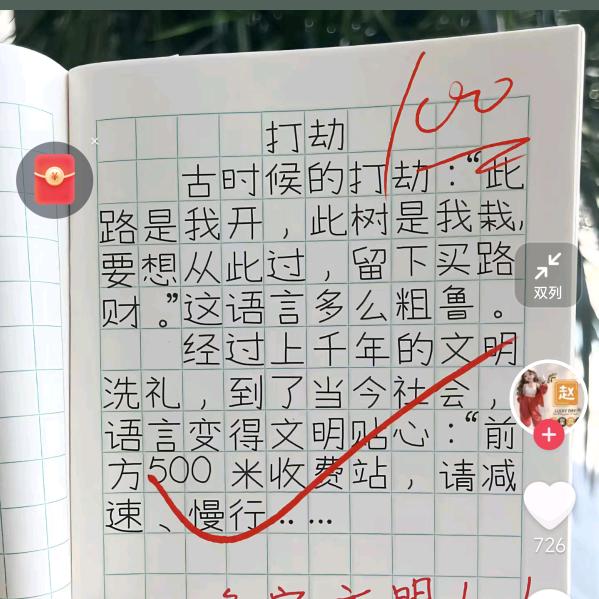 100
打劫
古时候的打劫：“此
路是我开，此树是我栽，
要想从此过，留下买路
财。”这语言多么粗鲁。
经过上千年的文明
洗礼，到了当今社会，
语言变得文明贴心：“前
方500米收费站，请减
速、慢行……
文明！！
双列
赵
726